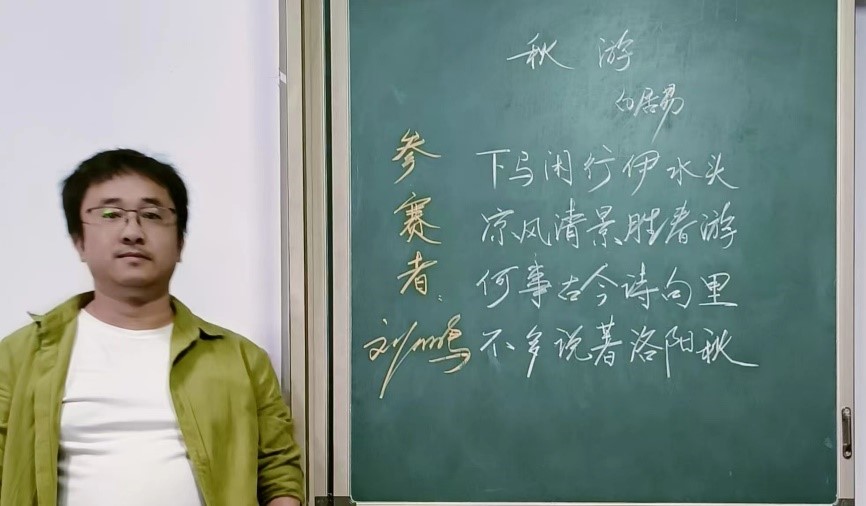 秋游
白居易
下马闲行伊水头
凉风清景胜春游
何事古今诗句里
不多说著洛阳秋
参赛者:
刘鹏